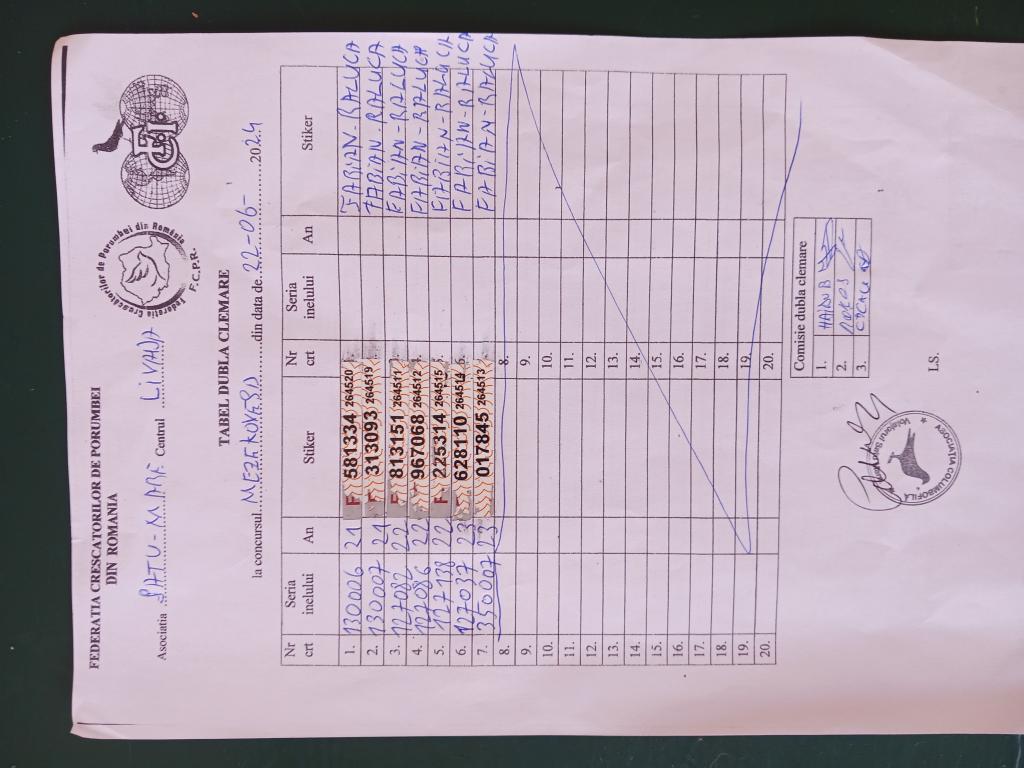 FEDERATIA CRESCATORILOR DE PORUMBEI
DIN ROMANIA
Federatia Crescatorilor de Porumbei din România
F.C.P.R.
Asociatia SATU-MARE Centrul LIVADA
TABEL DUBLA CLEMARE
la concursul MEZEKOVESD din data de 22-06- 2024
Nr crt Seria inelului An Stiker Nr crt Seria inelului An Stiker
1. 130006 21 F 581334 264520 FABIAN-RALUCA
2. 130007 21 F 313093 264519 FABIAN-RALUCA
3. 127082 22 F 813151 264517 FABIAN-RALUCA
4. 127086 22 F 967068 FABIAN-RALUCA
5. 127178 22 F 225314 264515 FABIAN-RALUCA
6. 127037 23 628110 264514 FABIAN-RALUCA
7. 350007 23 017845 264513 FABIAN-RALUCA
8. 8.
9. 9.
10. 10.
11. 11.
12. 12.
13. 13.
14. 14.
15. 15.
16. 16.
17. 17.
18. 18.
19. 19.
20. 20.
Comisie dubla clemare
1.
2.
3.
ASOCIATIA COLUMBOFILĂ
L.S.